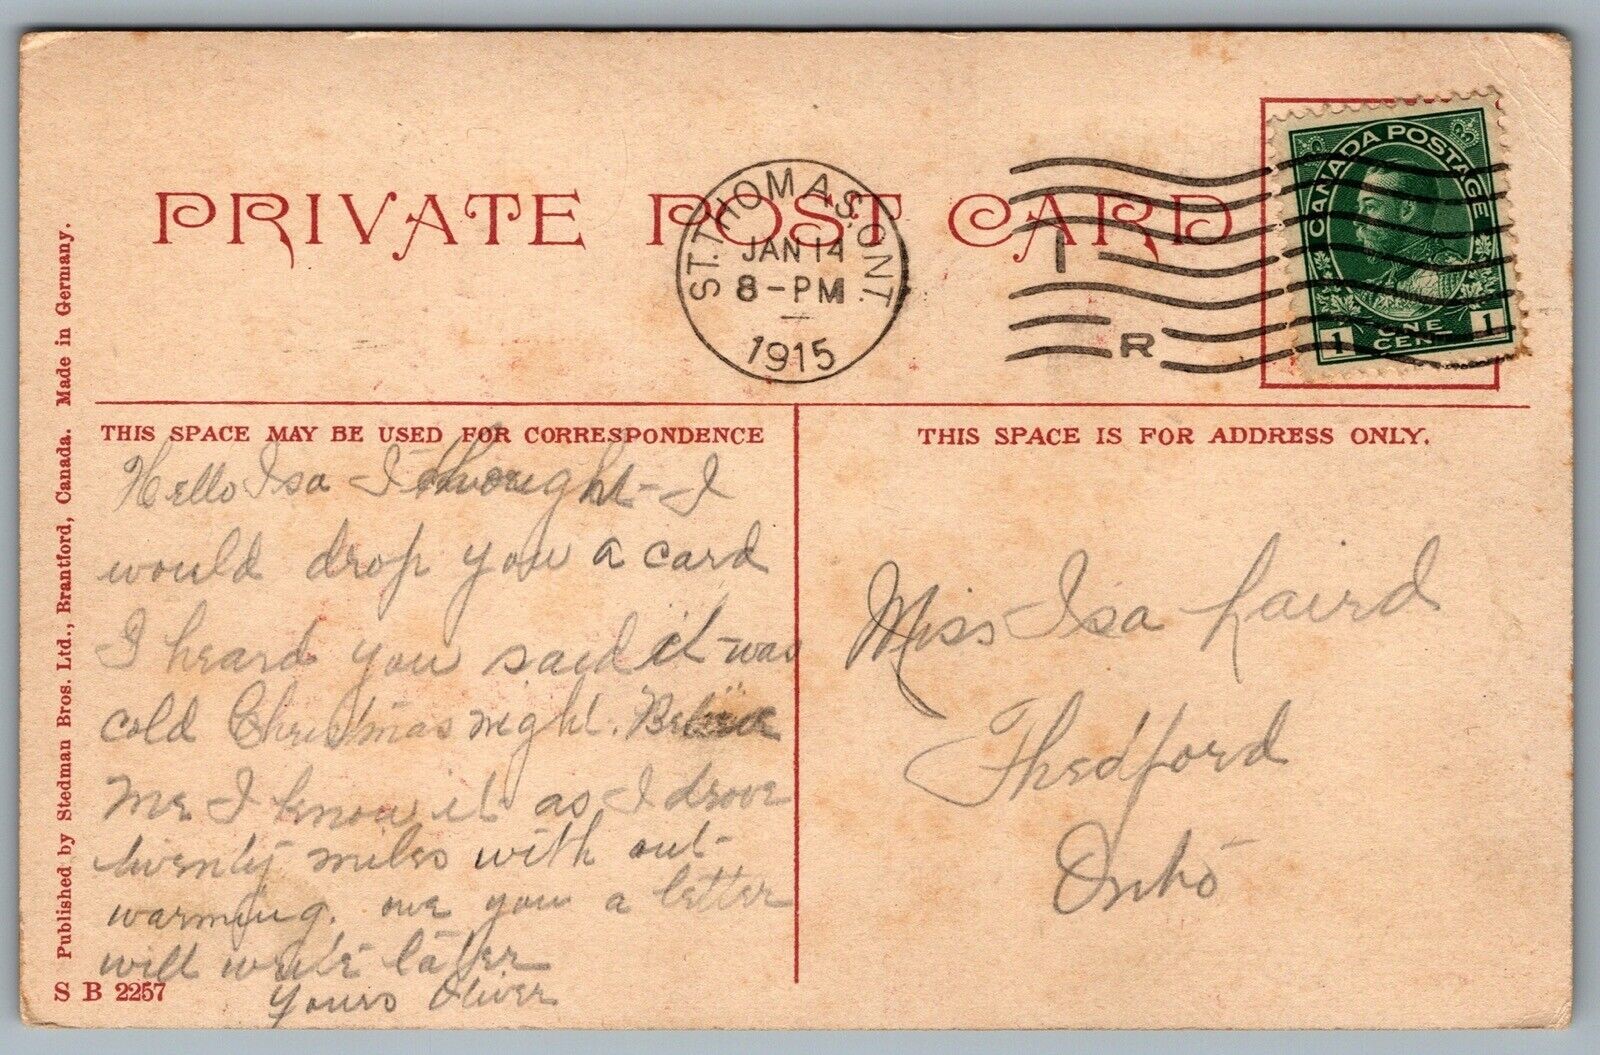 PRIVATE POST CARD
ST. THOMAS, ONT.
JAN 14
8-PM
1915
I
R
CANADA POSTAGE
1 ONE CENT 1
THIS SPACE MAY BE USED FOR CORRESPONDENCE
Hello Isa I thought I
would drop you a card
I heard you said it was
cold Christmas night. Believe
me I know it as I drove
twenty miles with out
warming. owe you a letter
will write later
Yours Oliver
THIS SPACE IS FOR ADDRESS ONLY.
Miss Isa Laird
Thedford
Onto
Published by Stedman Bros. Ltd., Brantford, Canada. Made in Germany.
S B 2257